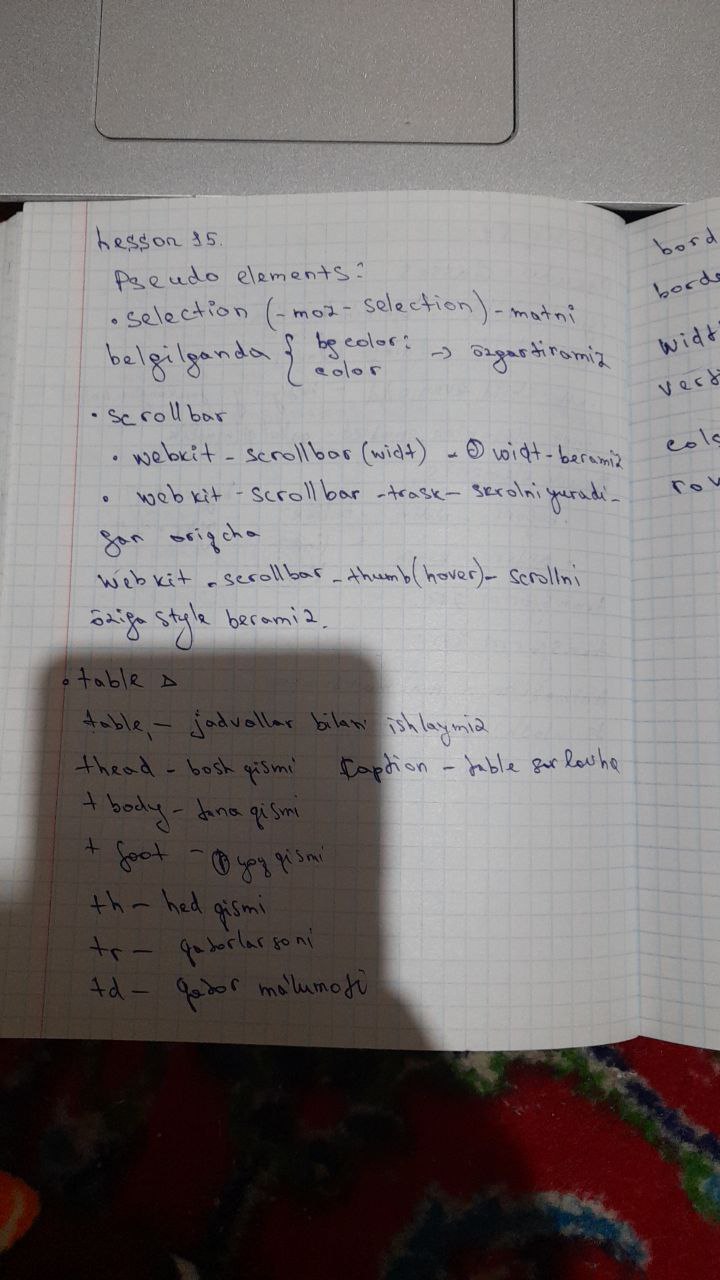 Lesson 15.
Pseudo elements:
• selection (-moz-selection) - matni
belgilganda { bgcolor: color → özgartiramiz
• scrollbar
• webkit - scrollbar (widt) - widt - beramiz
• webkit - scrollbar - trask - skrolni yuradi-
gan ariqcha
webkit - scrollbar - thumb(hover) - scrollni
öziga style beramiz.
• table
table, - jadvallar bilan ishlaymiz
thead - bosh qismi Caption - table sarlavha
tbody - tana qismi
tfoot - oyoq qismi
th - hed qismi
tr - qatorlar soni
td - qator ma'lumoti
bord
borde
widt
vert
colo
row